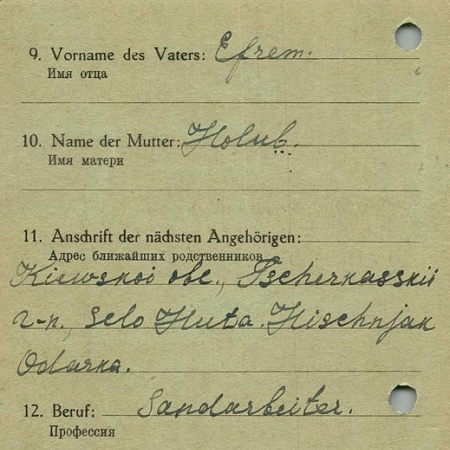 9. Vorname des Vaters: Efrem.
Имя отца
10. Name der Mutter: Holub.
Имя матери
11. Anschrift der nächsten Angehörigen:
Адрес ближайших родственников
Kiewskoi obl., Tscherkasskii
r-n, Selo Huta. Hischnjak
Odarka.
12. Beruf: Landarbeiter.
Профессия